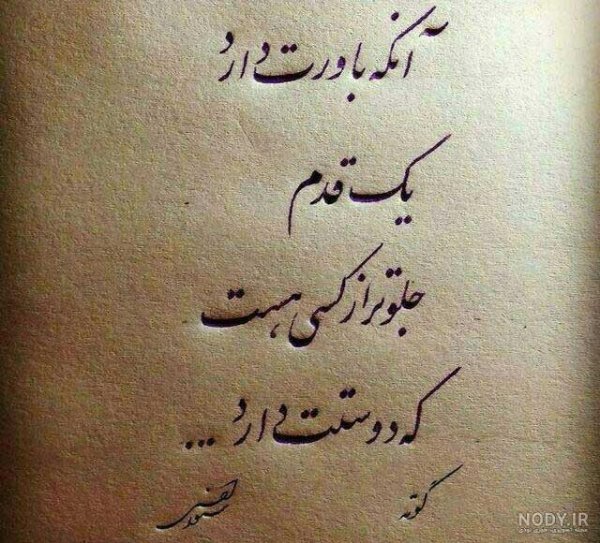 آنکه باورت دارد
یک قدم
جلوتر از کسی هست
که دوستت دارد ...
گوته
NODY.IR